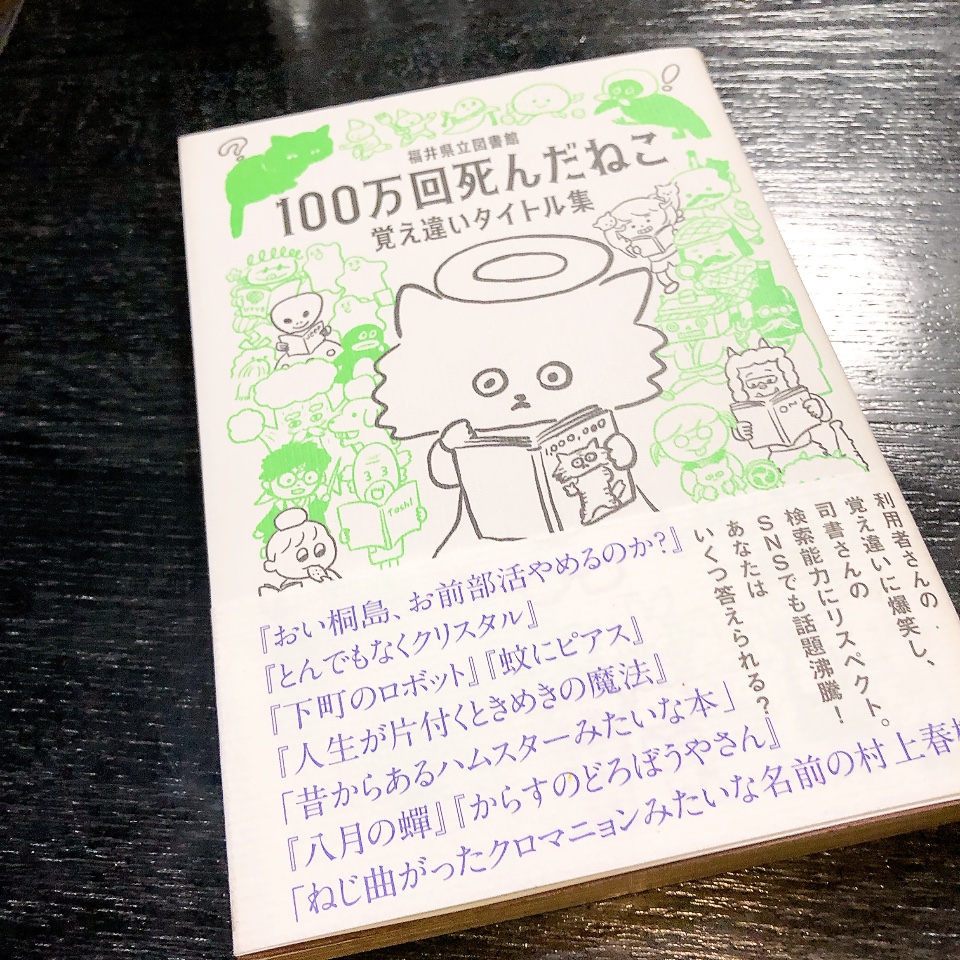 福井県立図書館
100万回死んだねこ
覚え違いタイトル集
Toshi
利用者さんの
覚え違いに爆笑し、
司書さんの
検索能力にリスペクト。
SNSでも話題沸騰!
あなたは
いくつ答えられる?
『おい桐島、お前部活やめるのか?』
『とんでもなくクリスタル』
『下町のロボット』『蚊にピアス』
『人生が片付くときめきの魔法』
「昔からあるハムスターみたいな本」
『八月の蟬』『からすのどろぼうやさん』
「ねじ曲がったクロマニョンみたいな名前の村上春樹